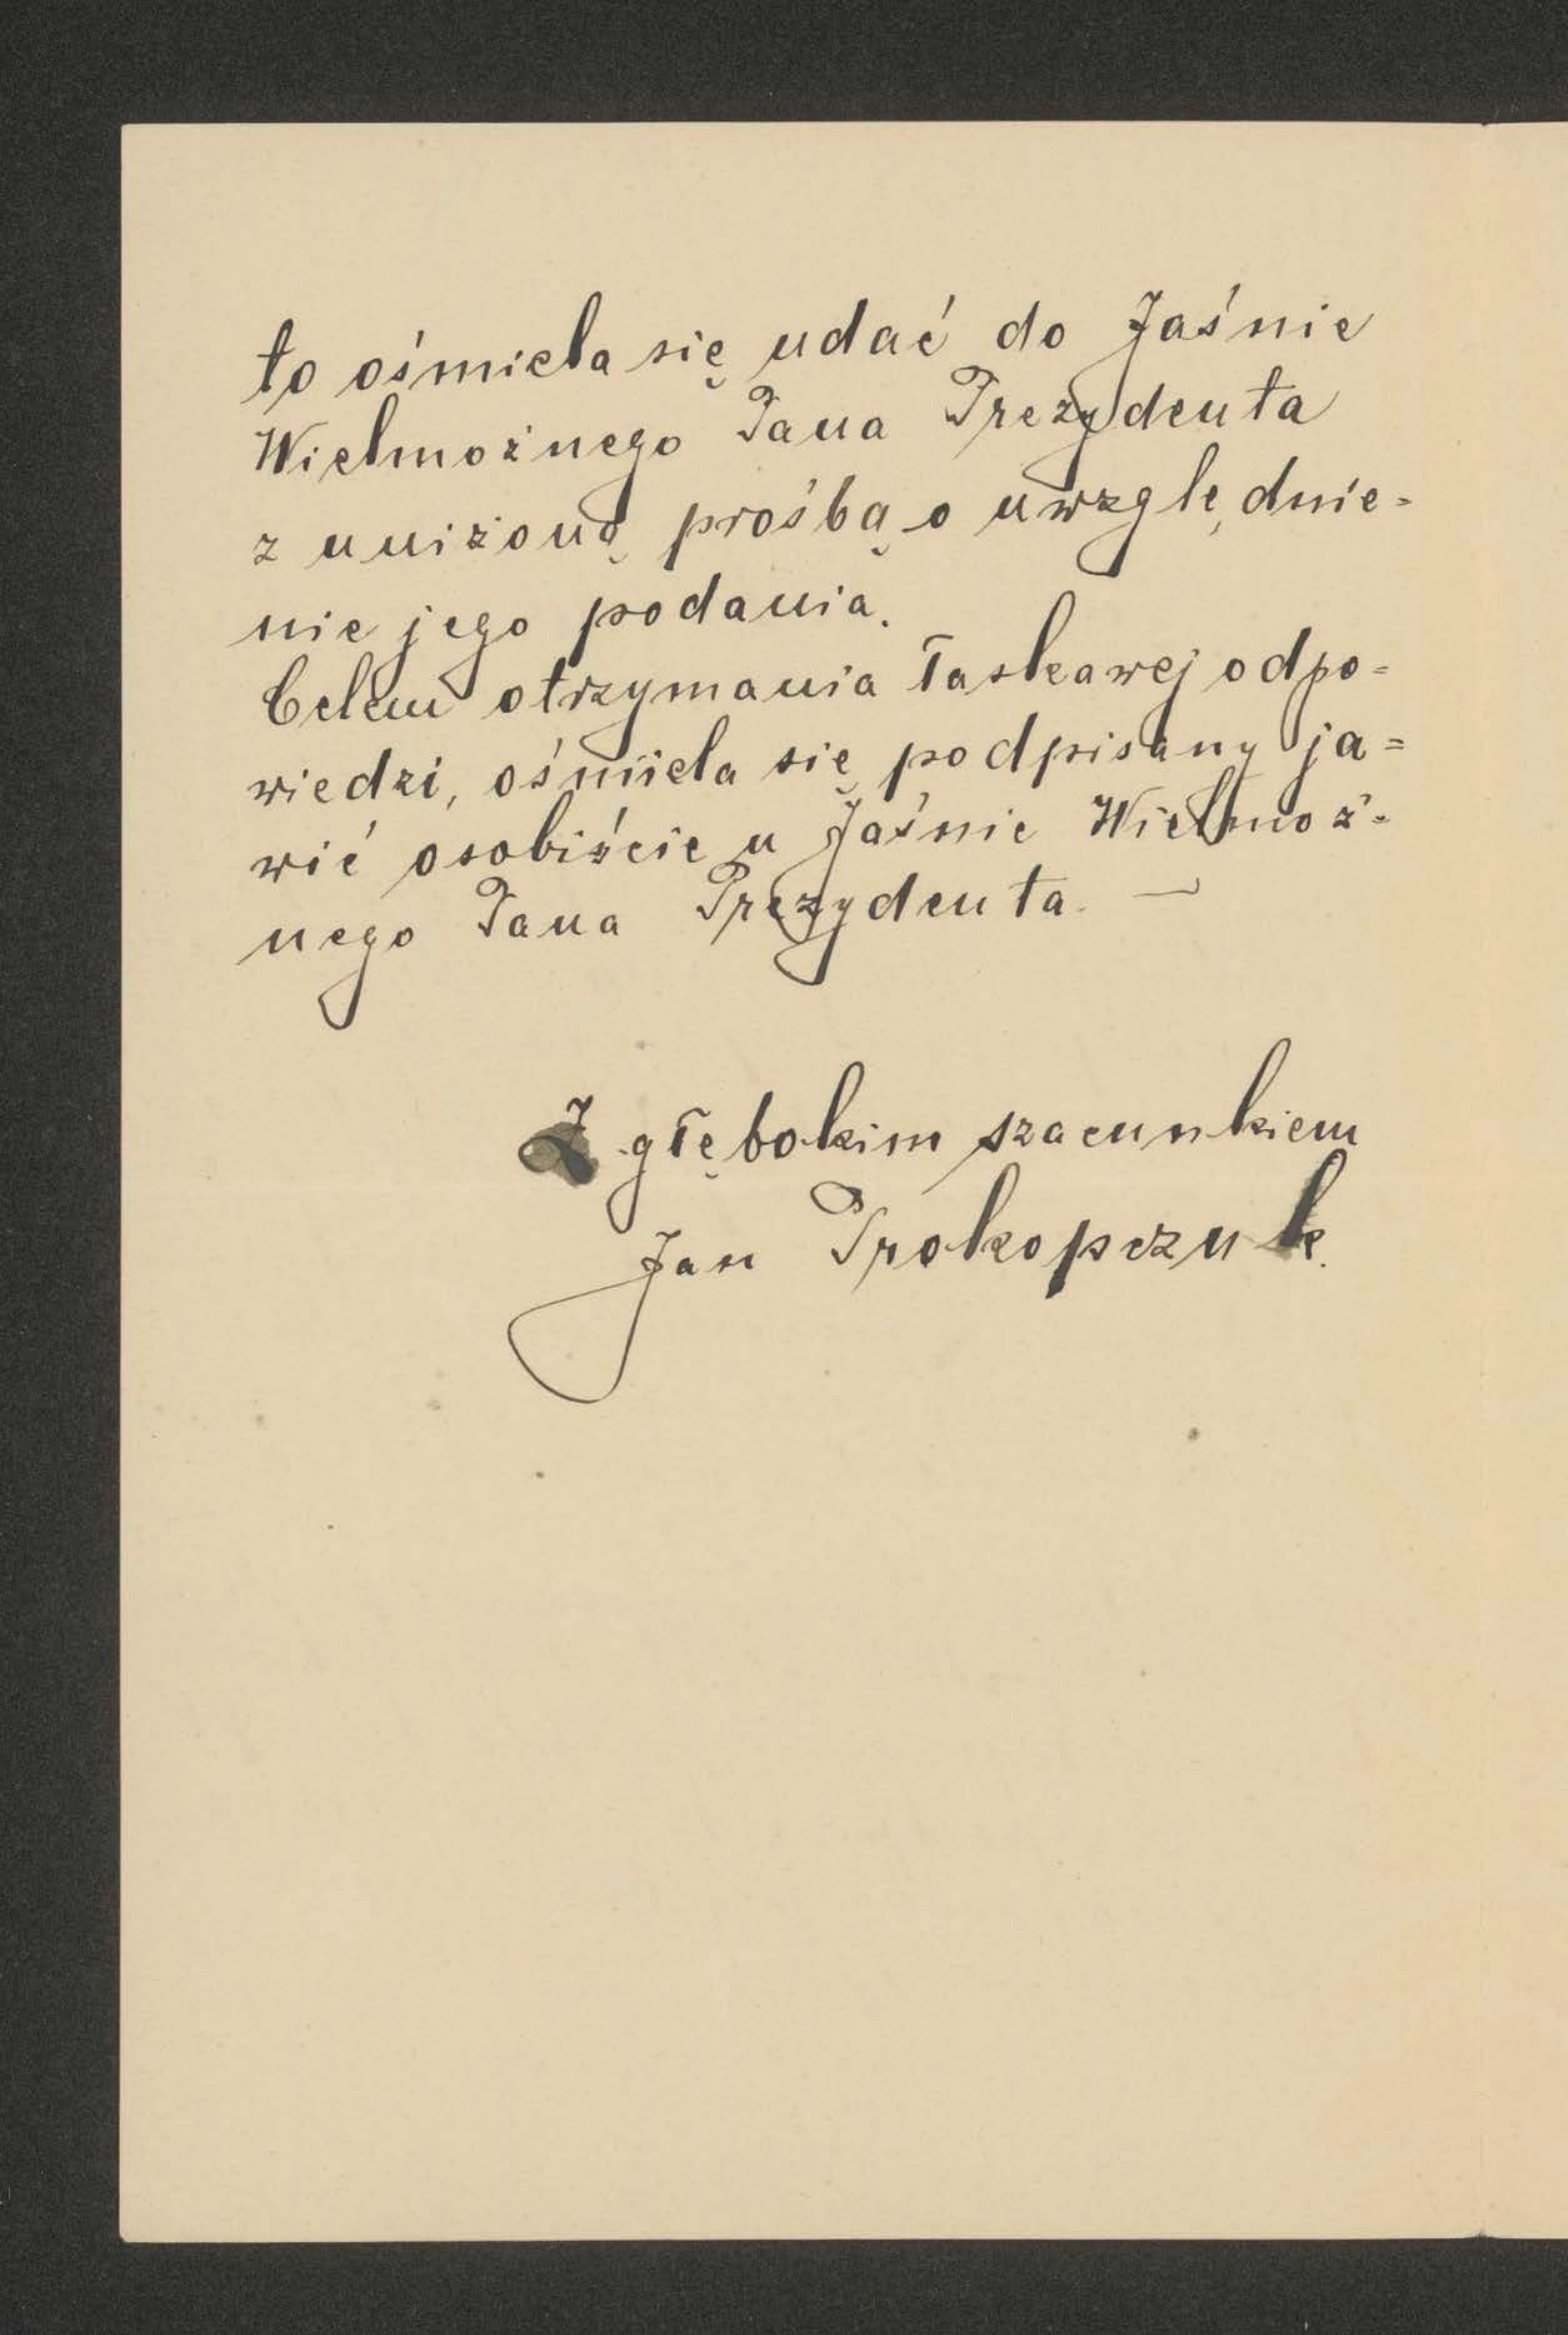 to ośmiela się udać do Jaśnie
Wielmożnego Pana Prezydenta
z uniżoną prośbą o uwzględnie=
nie jego podania.
Celem otrzymania łaskawej odpo=
wiedzi, ośmiela się podpisany ja=
wić osobiście u Jaśnie Wielmoż=
nego Pana Prezydenta. —
Z głębokim szacunkiem
Jan Prokopczuk.